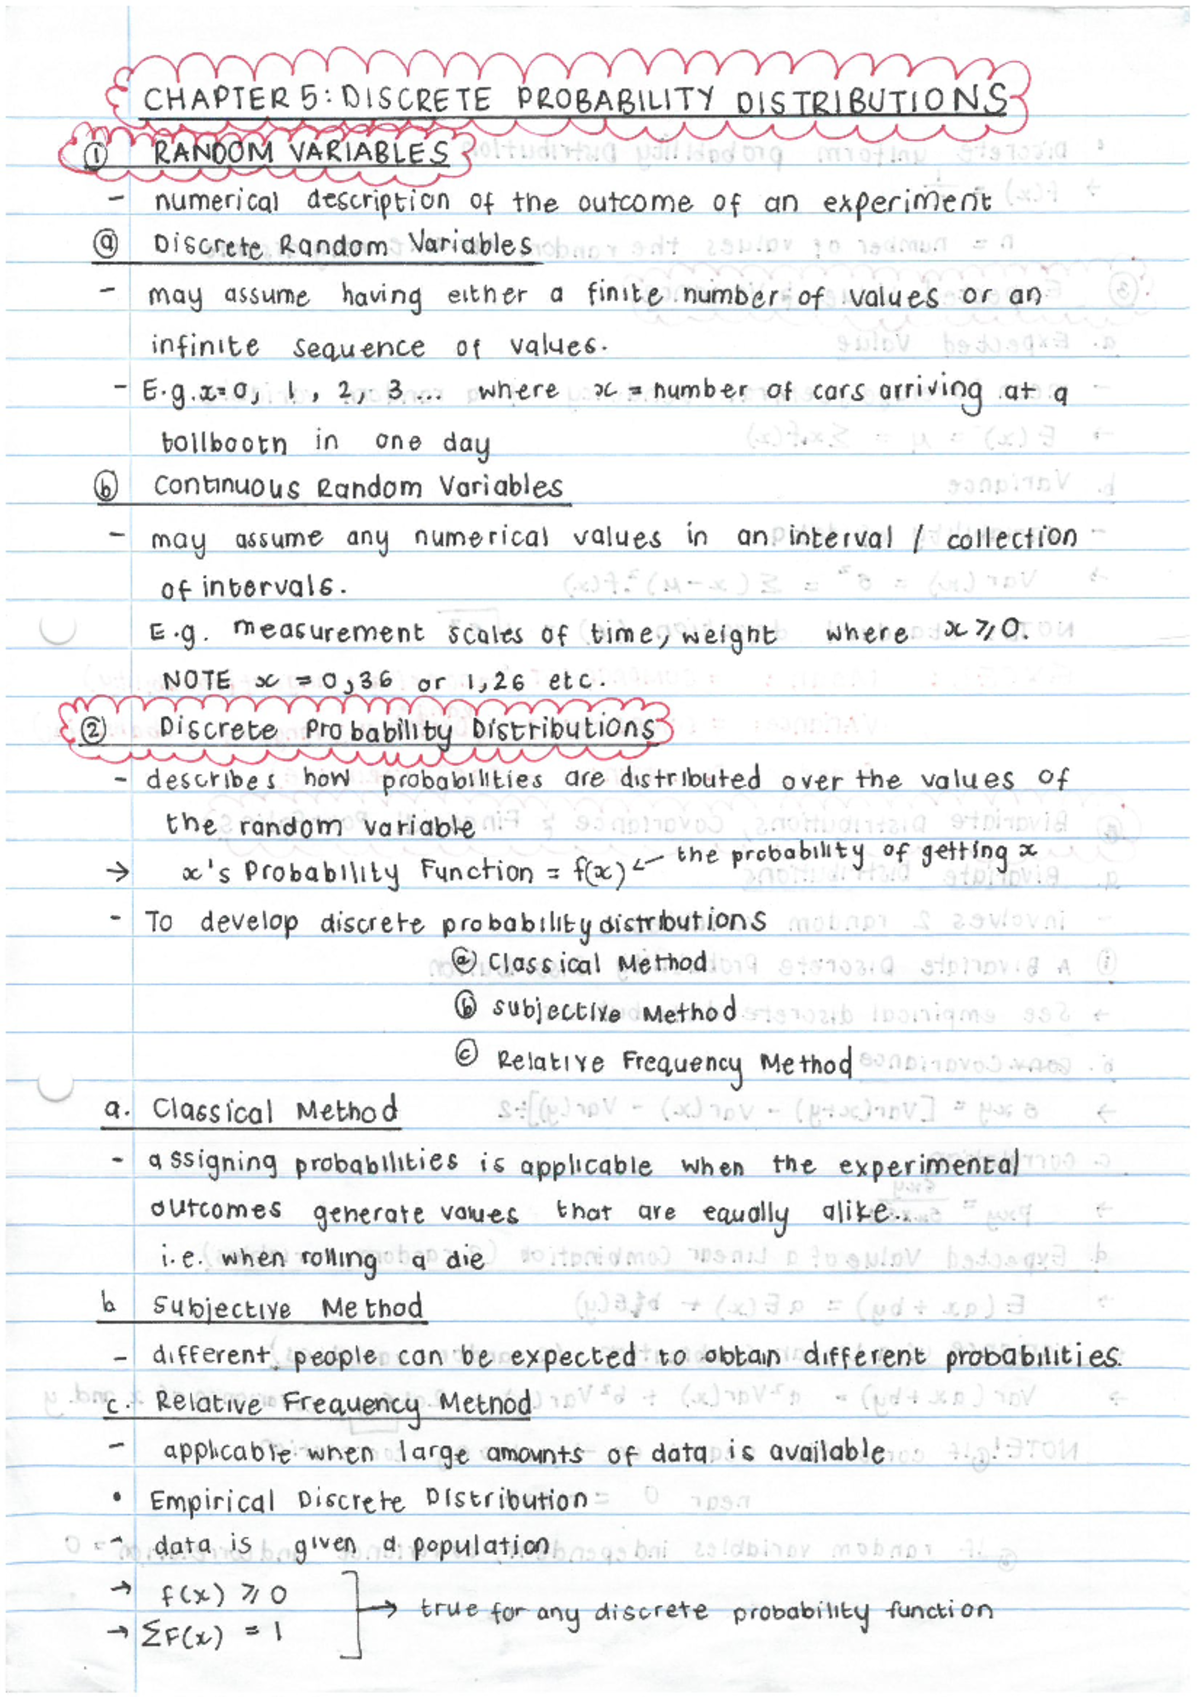 CHAPTER 5: DISCRETE PROBABILITY DISTRIBUTIONS
① RANDOM VARIABLES
- numerical description of the outcome of an experiment
ⓐ Discrete Random Variables
- may assume having either a finite number of values or an
infinite sequence of values.
- E.g. x=0, 1, 2, 3... where x = number of cars arriving at a
tollbooth in one day
ⓑ Continuous Random Variables
- may assume any numerical values in an interval / collection
of intervals.
E.g. measurement scales of time, weight where x ⩾ 0.
NOTE x = 0,36 or 1,26 etc.
② Discrete Probability Distributions
- describes how probabilities are distributed over the values of
the random variable
→ x's Probability Function = f(x) ← the probability of getting x
- To develop discrete probability distributions
ⓐ Classical Method
ⓑ Subjective Method
ⓒ Relative Frequency Method
a. Classical Method
- assigning probabilities is applicable when the experimental
outcomes generate values that are equally alike.
i.e. when rolling a die
b Subjective Method
- different people can be expected to obtain different probabilities.
c. Relative Frequency Method
- applicable when large amounts of data is available
• Empirical Discrete Distribution
- data is given a population
→ f(x) ⩾ 0
→ ΣF(x) = 1
→ true for any discrete probability function